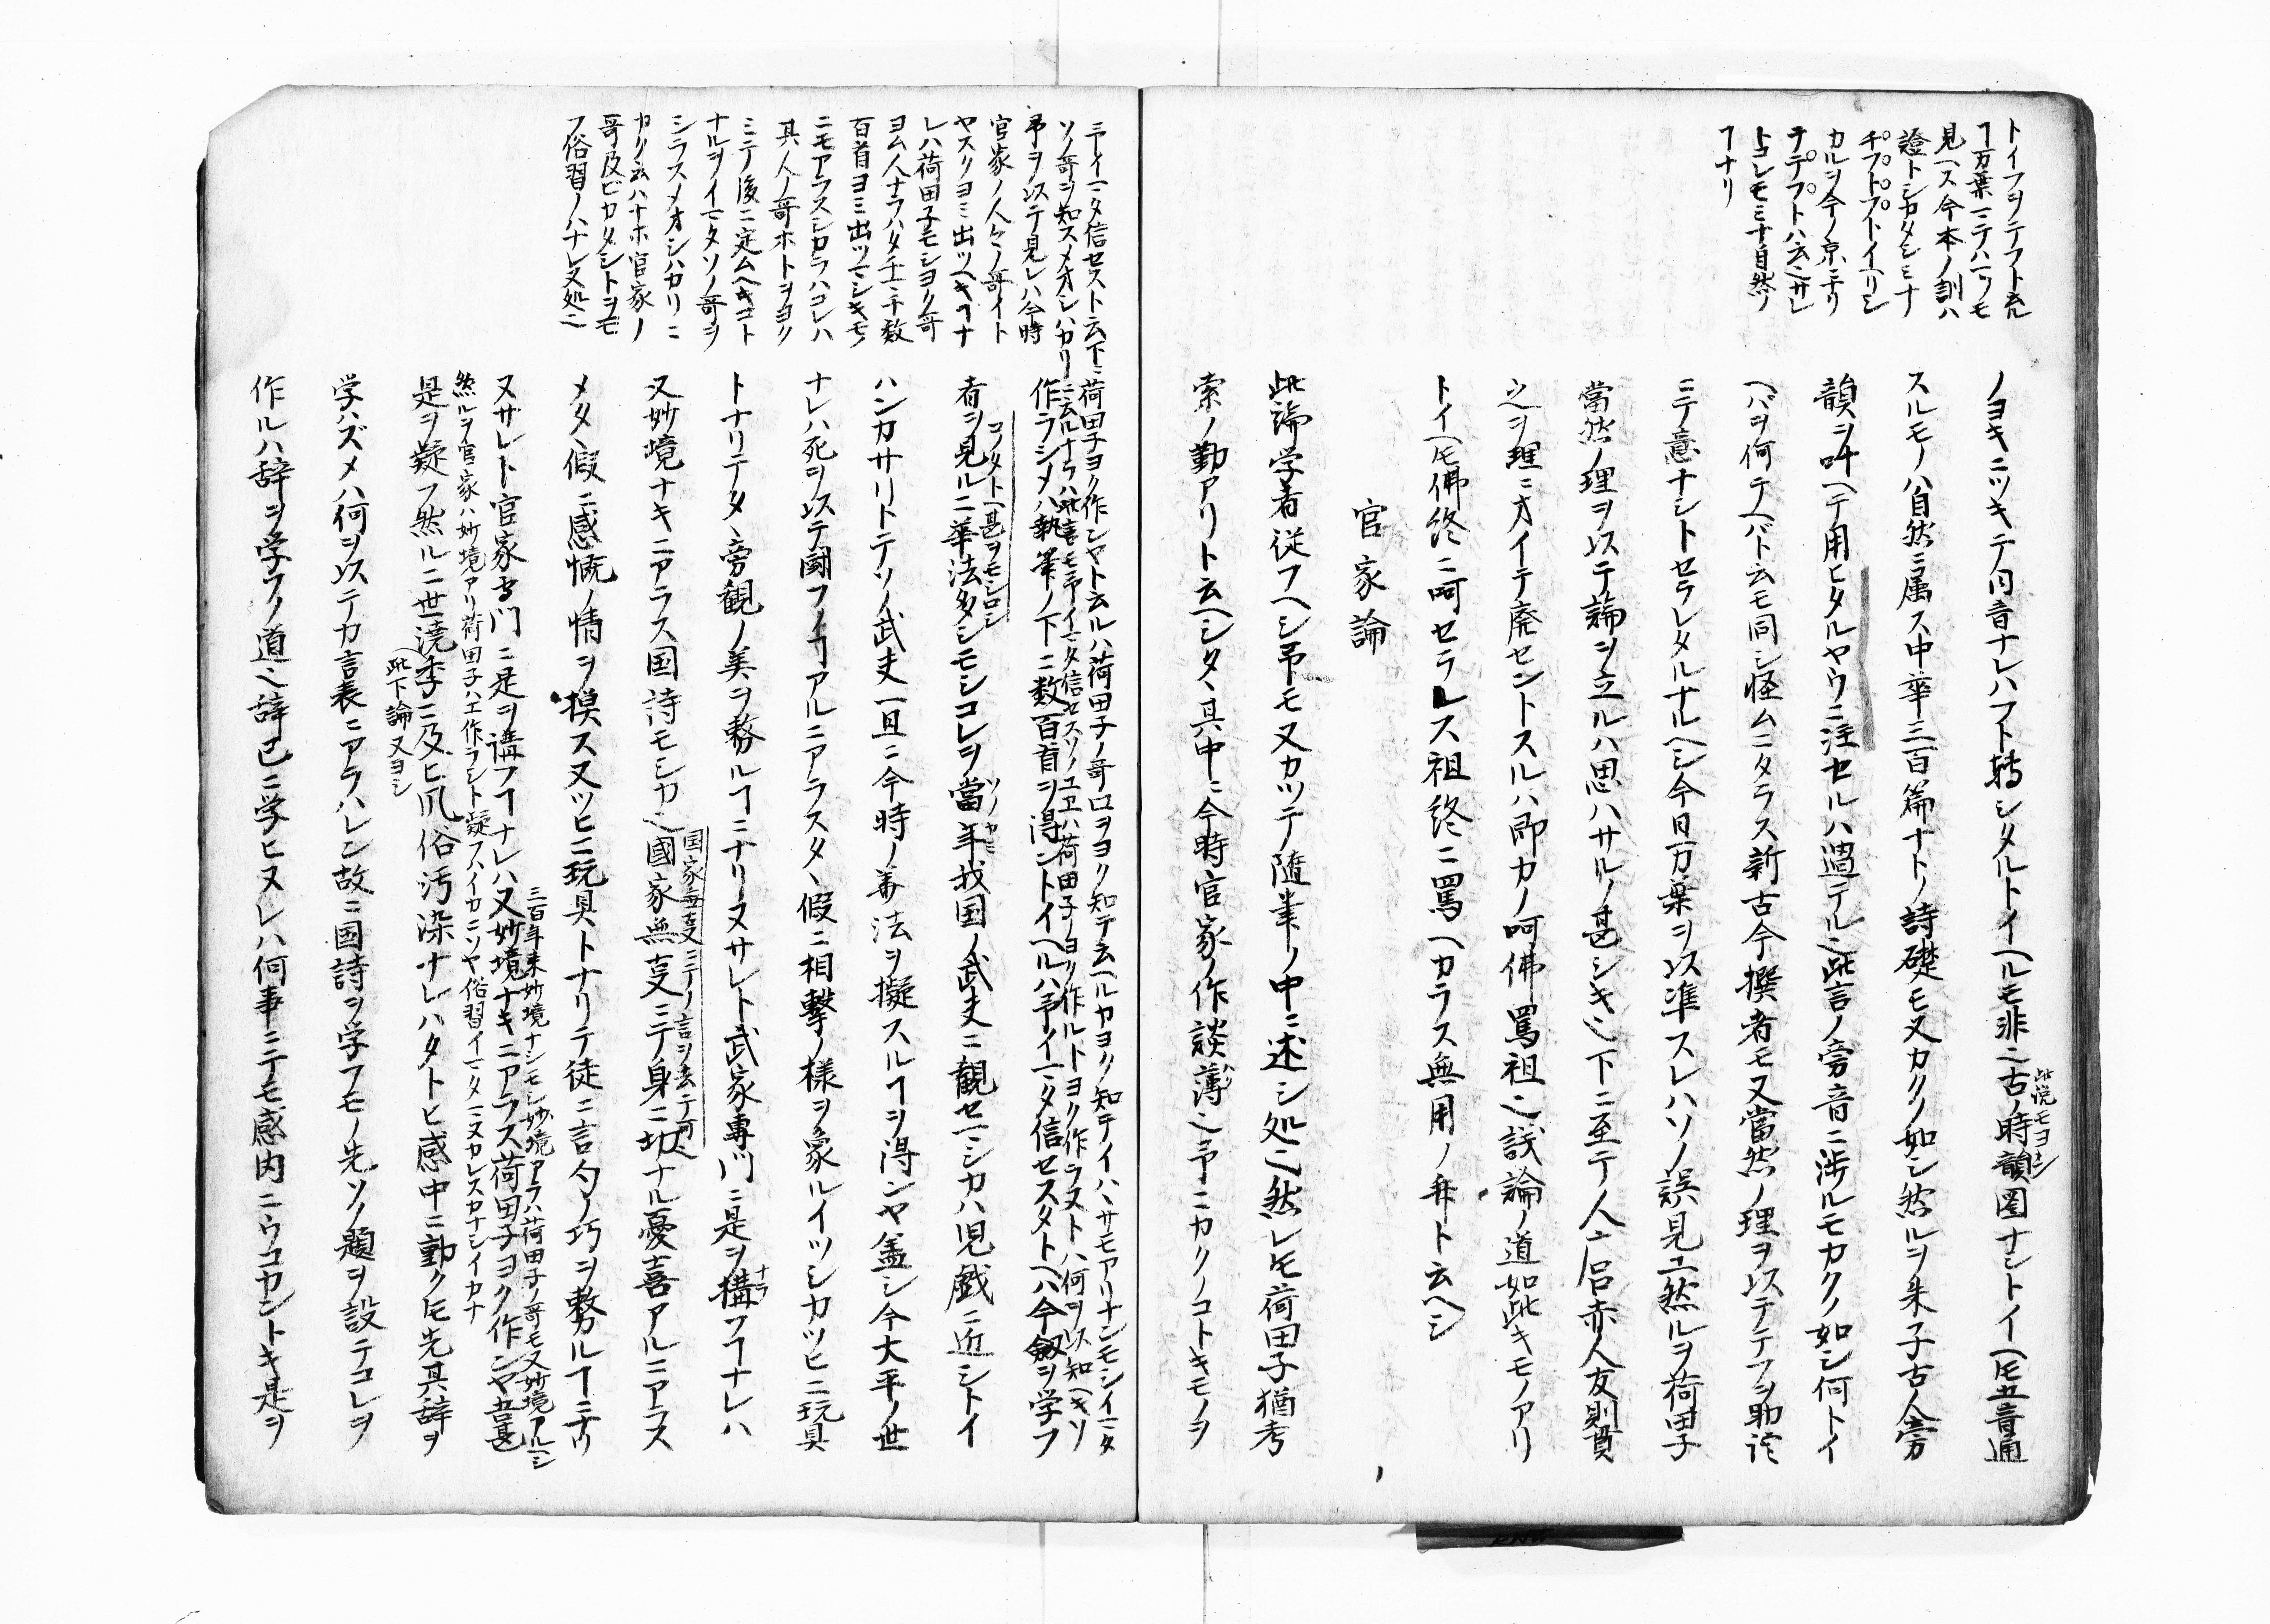 トイフヲテフト云
ヿ万葉ニテハ一ツモ
見ヘス今本ノ訓ハ
證トシカタシミナ
チプトプトイヘリシ
カルヲ今ノ京ニナリ
テテプトハ云ヘサレ
トコレモミナ自然ノ
ヿナリ
ノヨキニツキテ同音ナレハフト轉シタルトイヘルモ非也古ノ時韻圖ナシトイヘ𪜈五音通
此説モヨシ
スルモノハ自然ニ属ス中華三百篇ナトノ詩礎モ又カクノ如シ然ルヲ朱子古人旁
韻ヲ叶ヘテ用ヒタルヤウニ注セルハ過テル也此言ノ旁音ニ渉ルモカクノ如シ何トイ
ヘバヲ何テヘバト云モ同シ怪ムニタラス新古今撰者モ又當然ノ理ヲ以テテフヲ助語
ニテ意ナシトセラレタルナルヘシ今日万葉ヲ以準スレハソノ誤見エ然ルヲ荷田子
當然ノ理ヲ以テ論ヲ立ルハ思ハサルノ甚シキ也下ニ至テ人麿赤人友則貫
之ヲ理ニオイテ廃セントスルハ即カノ呵佛罵祖也議論ノ道如此キモノアリ
トイヘ𪜈佛終ニ呵セラレス祖終ニ罵ヘカラス無用ノ弁ト云ヘシ
官家論
此論学者従フヘシ予モ又カツテ隨筆ノ中ニ述シ処也然レ𪜈荷田子猶考
索ノ勤アリト云ヘシタヽ其中ニ今時官家ノ作談薄也予ニカクノコトキモノヲ
予イマタ信セスト云下ニ
ソノ哥ヲ知スメオシハカリニ云ルナラハ此言モ予イマタ信セスソノユヱハ荷田子ノヨク作ルトヨク作ラヌトハ何ヲ以知ヘキソ
弟ヲ以テ見レハ今時
官家ノ人々ノ哥イト
ヤスクヨミ出ツヘキヿナ
レハ荷田子モシヨク哥
ヨム人ナラハタチニ千数
百首ヨミ出ツマシキモ
ニモアラスシカラハコレハ
其人ノ哥ホトヲヨク
ミテノ後ニ定ムヘキコト
ナルヲイマタソノ哥ヲ
シラスメオシハカリニ
カク云ハナホ官家ノ
哥及ビカタシトヲモ
フ俗習ノハナレヌ処ニ
荷田子ヨク作ンヤト云ルハ荷田子ノ哥口ヲヨク知テ云ヘルカヨク知テイハヽサモアリナンモシイマタ
作ラシメハ執筆ノ下ニ数百首ヲ得ントイヘルハ予イマタ信セスタトヘハ今劔ヲ学フ
コノタトヘ甚ヲモシロシ
者ヲ見ルニ華法多シモシコレヲ當年我国ノ武夫ニ観セマシカハ児戯ニ近シトイ
ソノカミ
ハンカサリトテソノ武夫一旦ニ今時ノ善法ヲ擬スルヿヲ得ンヤ蓋シ今大平ノ世
ナレハ死ヲ以テ闘フノヿアルニアラスタヽ假ニ相撃ノ様ヲ象ルイツシカツヒニ玩具
トナリテタヽ旁観ノ美ヲ務ルヿニナリヌサレト武家專門ニ是ヲ構フヿナレハ
ナラ
又妙境ナキニアラス国詩モシカ也國家無変ニテ身ニ切ナル憂喜アルニアラス
国家無変ニテノ言ヲ去テ可也
メタヽ假ニ感慨ノ情ヲ摸ス又ツヒニ玩具トナリテ徒ニ言勺ノ巧ヲ務ルヿニナリ
三百年来妙境ナシモシ妙境アラハ荷田子ノ哥モ又妙境アルヘシ
又サレト官家専門ニ是ヲ講フヿナレハ又妙境ナキニアラス荷田子ヨク作ンヤ吾甚
然ルヲ官家ハ妙境アリ荷田子ハエ作ラシト疑フハイカニソヤ俗習イマタマヌカレスカナシイカナ
是ヲ疑フ然ルニ世澆季ニ及ヒ風俗汚染ナレハタトヒ感中ニ動ク𪜈先其辞ヲ
此下論又ヨシ
学ハズメハ何ヲ以テカ言表ニアラハレン故ニ国詩ヲ学フモノ先ソノ題ヲ設テコレヲ
作ルハ辞ヲ学フノ道也辞已ニ学ヒヌレハ何事ニテモ感内ニウコカントキ是ヲ